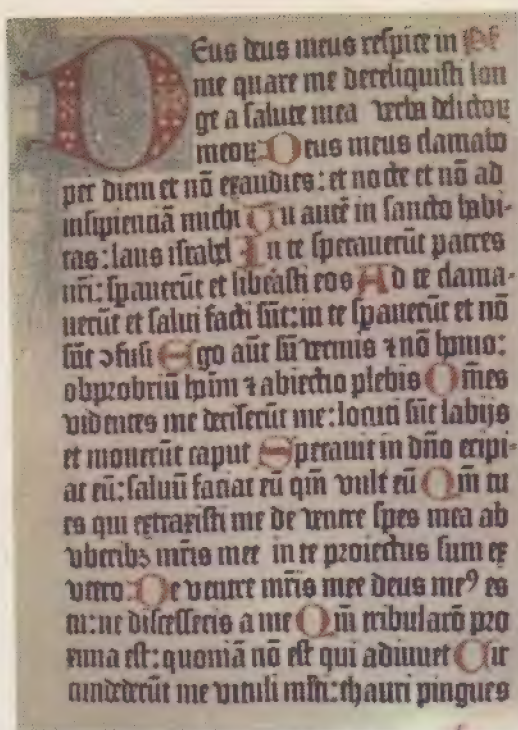 DEus deus meus respice in ps
me quare me dereliquisti lon
ge a salute mea verba delictoꝝ
meoꝝ: Deus meus clamabo
per diem et nō exaudies: et nocte et nō ad
insipienciā michi Tu autē in sancto habi-
tas: laus israhel In te sperauerūt patres
nr̄i: spauerūt et libeasti eos Ad te clama-
uerūt et salui facti sūt: in te spauerūt et nō
sūt ɔfusi Ego aūt sū vermis ⁊ nō homo:
obprobriū hoīm ⁊ abiectio plebis Om̄es
videntes me deriserūt me: locuti sūt labijs
et mouerūt caput Sperauit in dn̄o eripi-
at eū: saluū faciat eū qm̄ vult eū Qm̄ tu
es qui extraxisti me de ventre spes mea ab
vberibꝫ mr̄is mee in te proiectus sum ex
vtero: De ventre mr̄is mee deus meꝰ es
tu: ne discesseris a me Qm̄ tribulatō pro
xima est: quoniā nō est qui adiuuet Cir
cundederūt me vituli mlti: thauri pingues